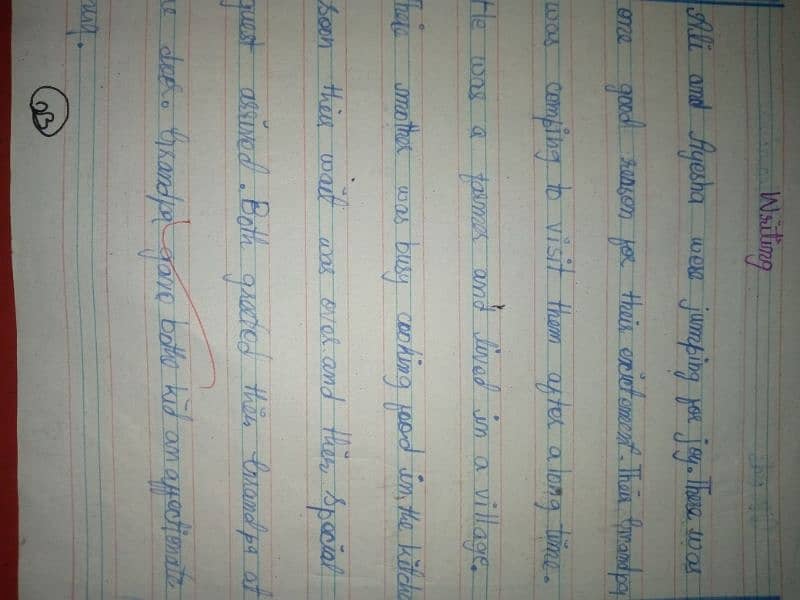 Writing
Ali and Ayesha were jumping for joy. There was
one good reason for their excitement. Their Grandpa
was comping to visit them after a long time.
He was a farmer and lived in a village.
Their mother was busy cooking food in the kitch
Soon their wait was over and their special
guest arrived. Both greeted their Grandpa at
he door. Grandpa gave bothe kid an affectionate